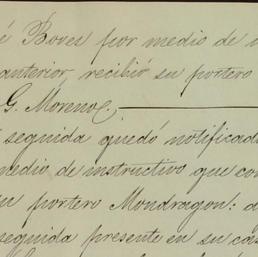 é Boves por medio de i
anterior, recibió su portero
G. Moreno.
seguida quedó notificada
medio de instructivo que con
su portero Mondragon: d
seguida presente en su cas